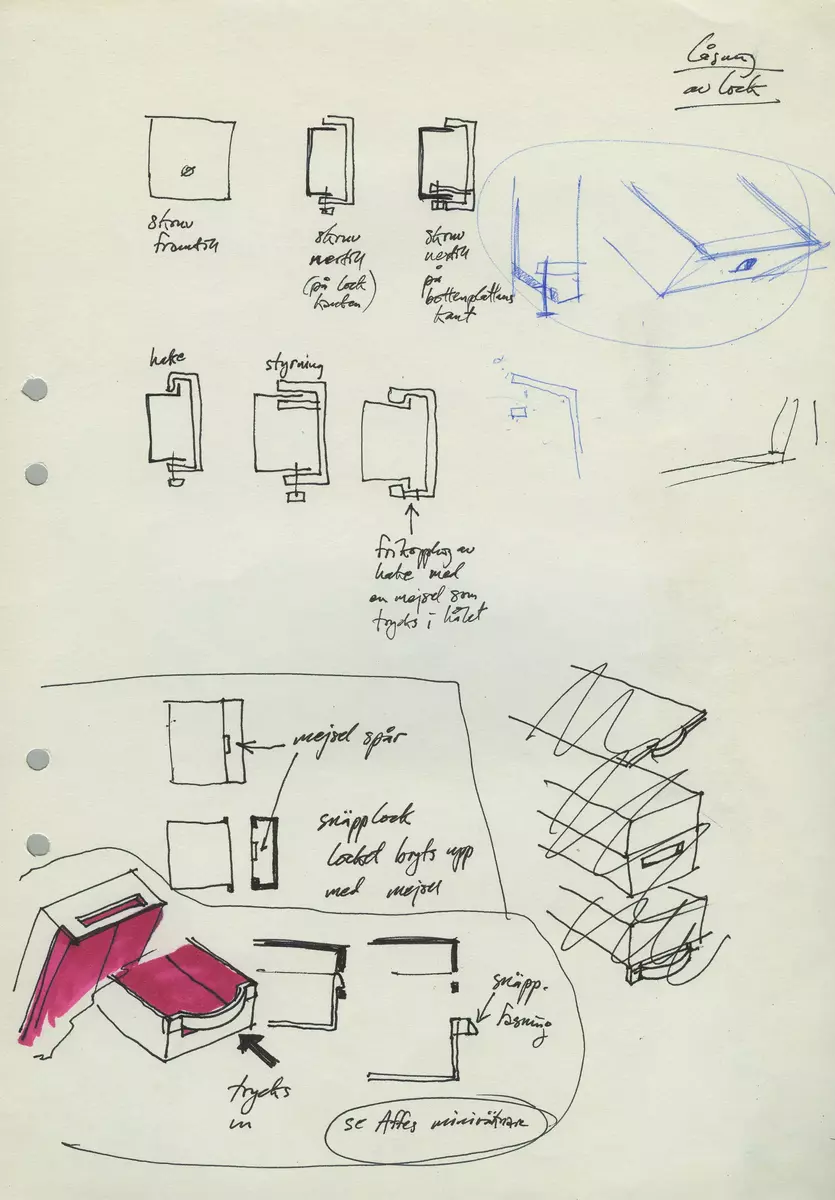 Låsning
av lock
skruv
framtill
skruv
nertill
(på lock
kanten)
skruv
nertill
på
bottenplattans
kant
hake
styrning
frikoppling av
hake med
en mejsel som
trycks i hålet
mejsel spår
snäpplock
locket bryts upp
med mejsel
snäpp-
låsning
trycks
in
se Affes miniräknare